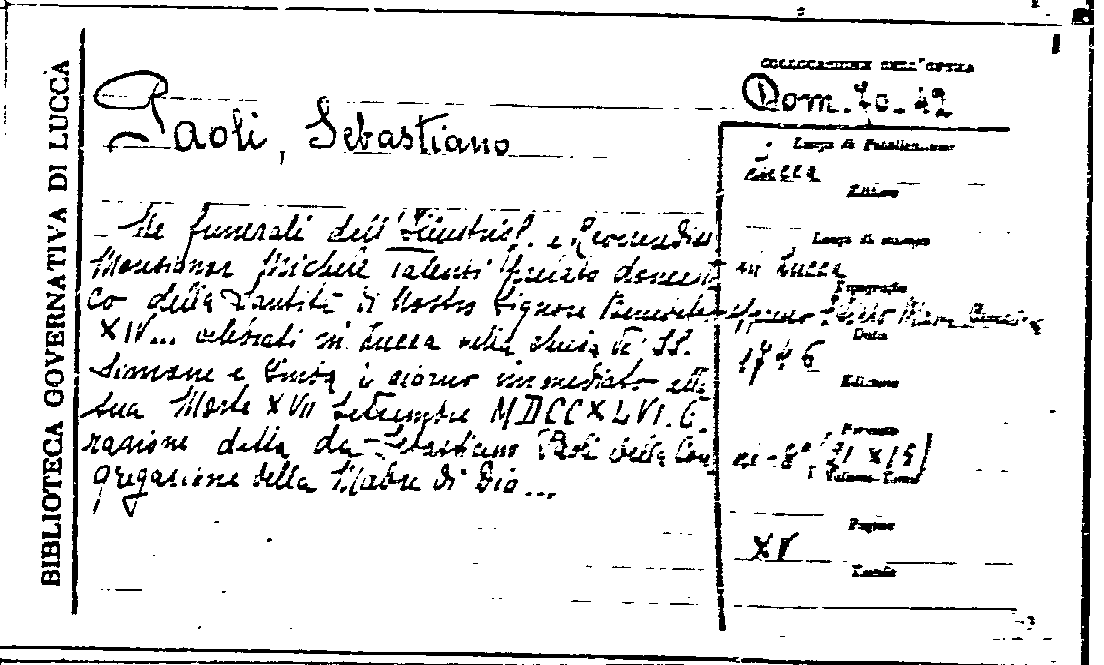 BIBLIOTECA GOVERNATIVA DI LUCCA
Paoli, Sebastiano
Ne funerali dell'Illustriss. e Reverendiss
Monsignor Michele Talenti Prelato domesti
co della Santità di Nostro Signore Benedetto
XIV... celebrati in Lucca nella chiesa de SS.
Simone e Giuda il giorno immediato alla
sua Morte XVII Settembre MDCCXLVI. O
razione detta da Sebastiano Paoli della Con
gregazione della Madre di Dio...
COLLOCAZIONE DELL'OPERA
Dom. 70. 42
Luogo di Pubblicazione
Lucca
Editore
Luogo di stampa
in Lucca
Tipografo
Data
1746
Edizione
Formato
in-8°, (21 x 15)
Volume-Tomo
Pagine
XV
Tavole